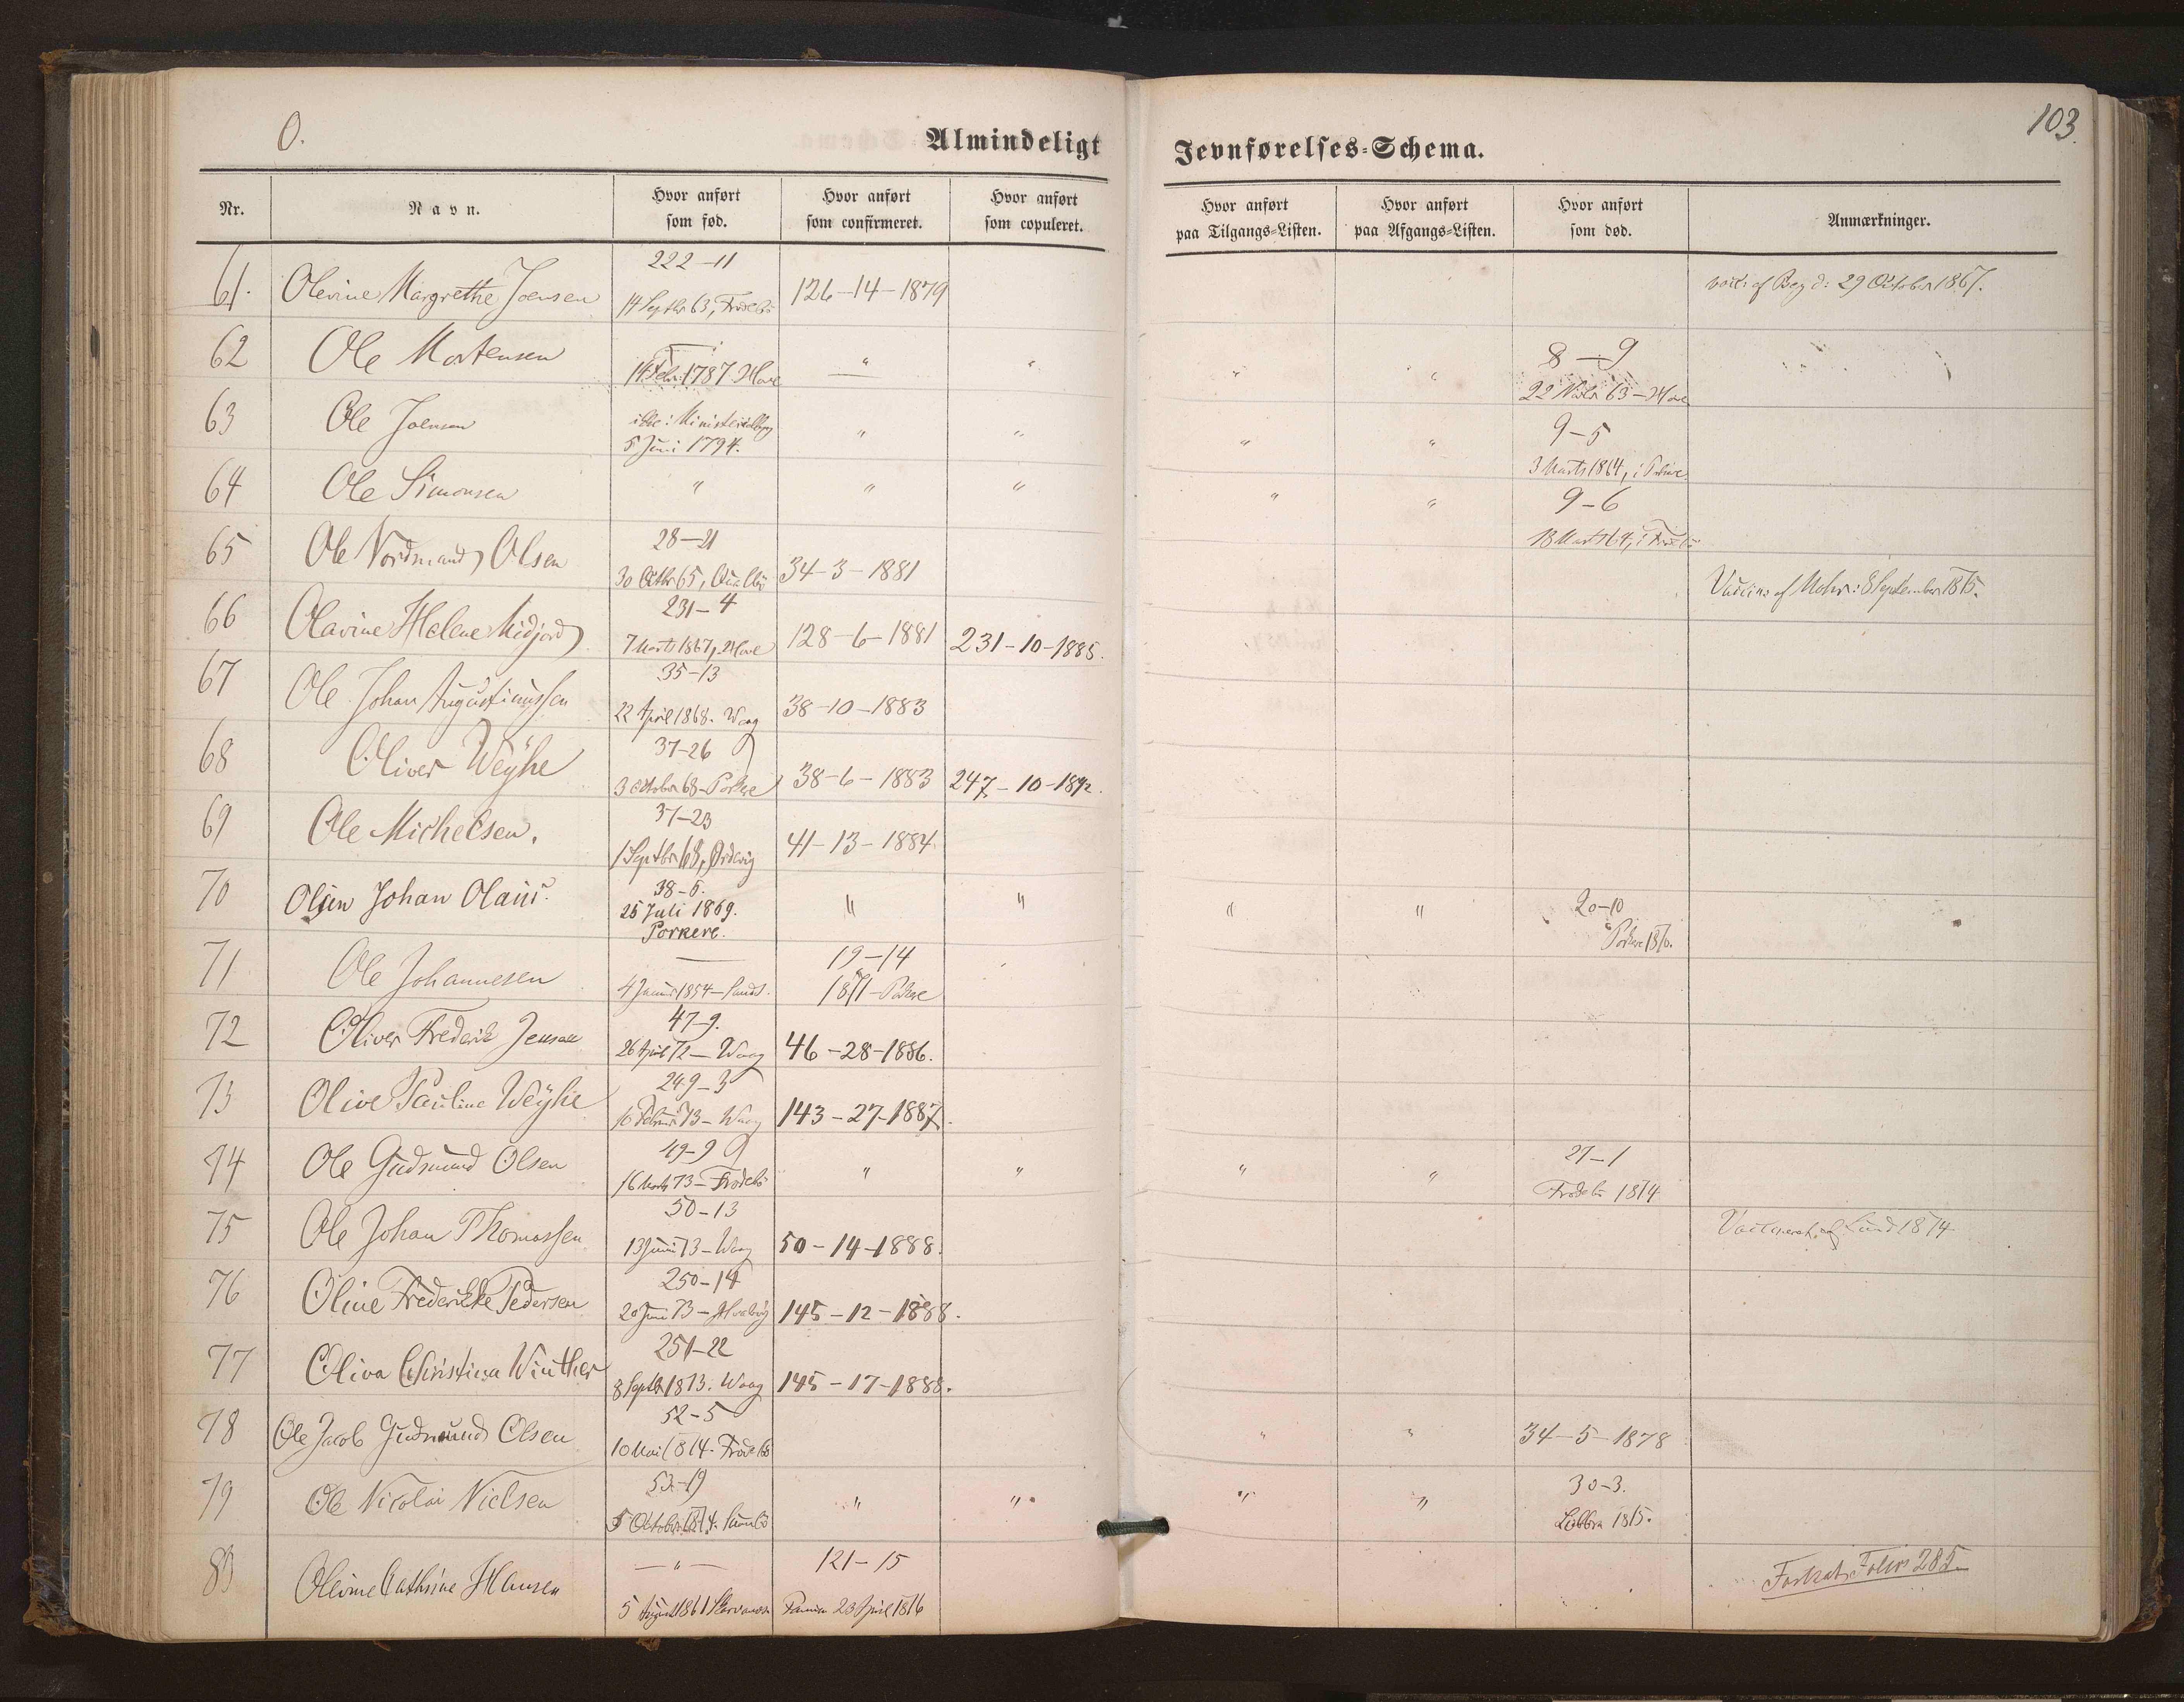 O.
103.
Almindeligt Jevnførelses-Schema.
Nr. Navn. Hvor anført som fød. Hvor anført som confirmeret. Hvor anført som copuleret. Hvor anført paa Tilgangs-Listen. Hvor anført paa Afgangs-Listen. Hvor anført som død. Anmærkninger.
222-11
61. Olevine Margrethe Joensen 14 Septbr 63, Frodebø 126-14-1879 29 October 1867.
62 Ole Mortensen 14 Febr. 1787. Hove " " " " 8-9
22 Novbr 63 - Hove
63 Ole Joensen ikke i Ministerialbog " " " " 9-5
5 Juni 1794. 3 Marts 1864, i Porkere
64 Ole Simonsen " " " " " 9-6
18 Marts 64, i Frodebø
28-21
65 Ole Nordmand Olsen 30 Octbr 65, Qualbø 34-3-1881 af Mohr: 8 September 1875.
231-4
66 Olavine Helene Midjord 7 Marts 1867, Hove 128-6-1881 231-10-1885.
35-13
67 Ole Johan Augustinussen 22 April 1868. Waag 38-10-1883
37-26
68 Oliver Weyhe 3 October 68 - Porkere 38-6-1883 247-10-1892.
37-23
69 Ole Michelsen. 1 Septbr 68, Ørdevig 41-13-1884
38-6.
70 Olsen Johan Olaus. 25 Juli 1869. " " " " 20-10
Porkere. Porkere 1870.
71 Ole Johannesen 4 Januar 1854 - Sands. 19-14
1871 - Porkere
47-9.
72 Oliver Frederik Jensen 26 April 72 - Waag 46-28-1886.
249-3
73 Olive Pauline Weyhe 10 Februar 73 - Waag 143-27-1887.
49-9
74 Ole Gudmund Olsen 16 Marts 73 - Frodebø " " " " 27-1
Frodebø 1874
50-13
75 Ole Johan Thomassen 13 Juni 73 - Waag 50-14-1888. Lund 1874
250-14
76 Oline Fredericke Pedersen 20 Juni 73 - 145-12-1888.
251-22
77 Oliva Christina Winther 8 Septbr 1873. Waag 145-17-1888.
52-5
78 Ole Jacob Gudmund Olsen 10 Mai 1874. Frodebø " " 34-5-1878
53-19
79 Ole Nicolai Nielsen 5 October 1874. Sumbø " " " " 30-3.
1875.
80 Olevine Cathrine Hansen - " - 121-15
5 August 1861 Famien 23 April 1876 Fortsat Folio 285.